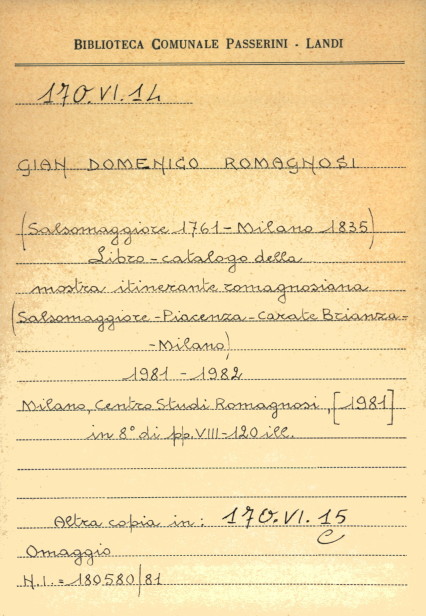 BIBLIOTECA COMUNALE PASSERINI - LANDI
170.VI.14
GIAN DOMENICO ROMAGNOSI
(Salsomaggiore 1761 - Milano 1835)
Libro-catalogo della
mostra itinerante romagnosiana
(Salsomaggiore - Piacenza - Carate Brianza -
- Milano)
1981 - 1982
Milano, Centro Studi Romagnosi, [1981]
in 8° di pp. VIII-120 ill.
Altra copia in: 170.VI.15
Omaggio
N.I. = 180580/81